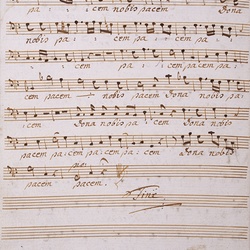 pa : : cem nobis pacem Dona
nobis pa : : cem pa : cem pa : :
cem Dona nobis pacem
cem pacem nobis pacem Dona nobis
: cem Dona nobis pa : cem
pacem pa : cem pa : cem pa :
pacem pacem.
Fine